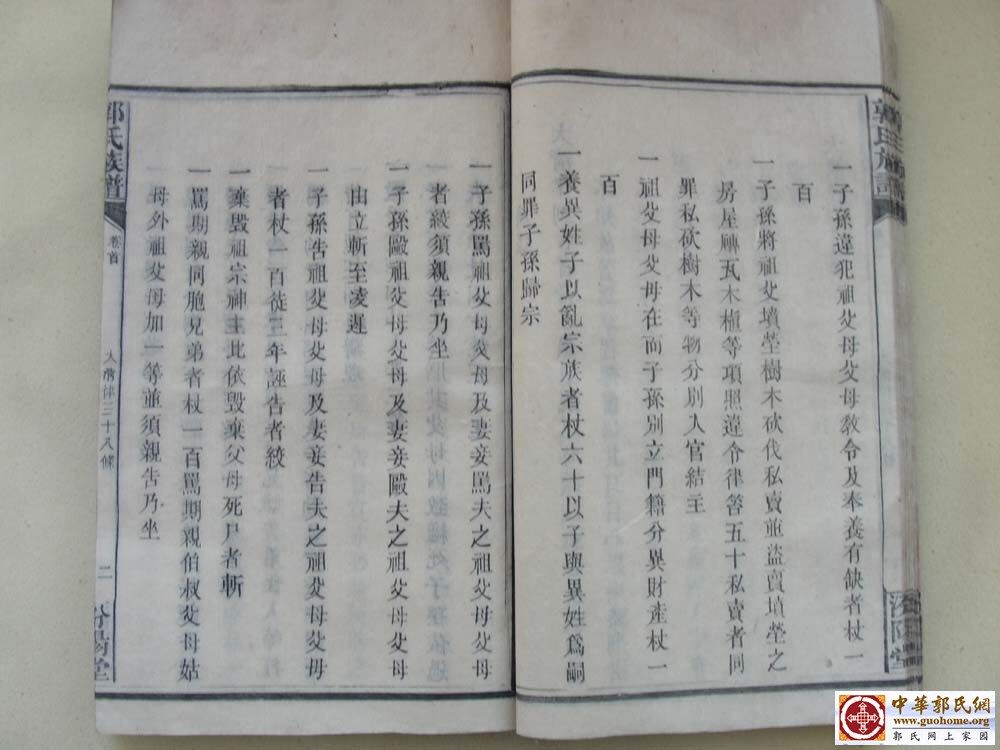 一子孫違犯祖父母父母教令及奉養有缺者杖一
百
一子孫將祖父墳塋樹木砍伐私賣並盜賣墳塋之
房屋磚瓦木植等項照違令律笞五十私賣者同
罪私砍樹木等物分別入官結主
一祖父母父母在而子孫別立門籍分異財產杖一
百
一養異姓子以亂宗族者杖六十以子與異姓爲嗣
同罪子孫歸宗
一子孫罵祖父母父母及妻妾罵夫之祖父母父母
者絞須親告乃坐
一子孫毆祖父母父母及妻妾毆夫之祖父母父母
由立斬至凌遲
一子孫告祖父母父母及妻妾告夫之祖父母父母
者杖一百徒三年誣告者絞
一棄毀祖宗神主比依毀棄父母死尸者斬
一罵期親同胞兄弟者杖一百罵期親伯叔父母姑
母外祖父母加一等並須親告乃坐
郭氏族譜
卷首
大清律三十八條
二
汾陽堂
郭氏族譜
汾陽堂
中華郭氏網
www.guohome.org
郭氏网上家园